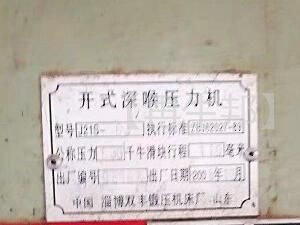 开式深喉压力机
型号 J21S- 执行标准 ZBJ62027-89
公称压力 千牛 滑块行程 毫米
出厂编号 出厂日期 200 年 月
中国 淄博双丰锻压机床厂 山东